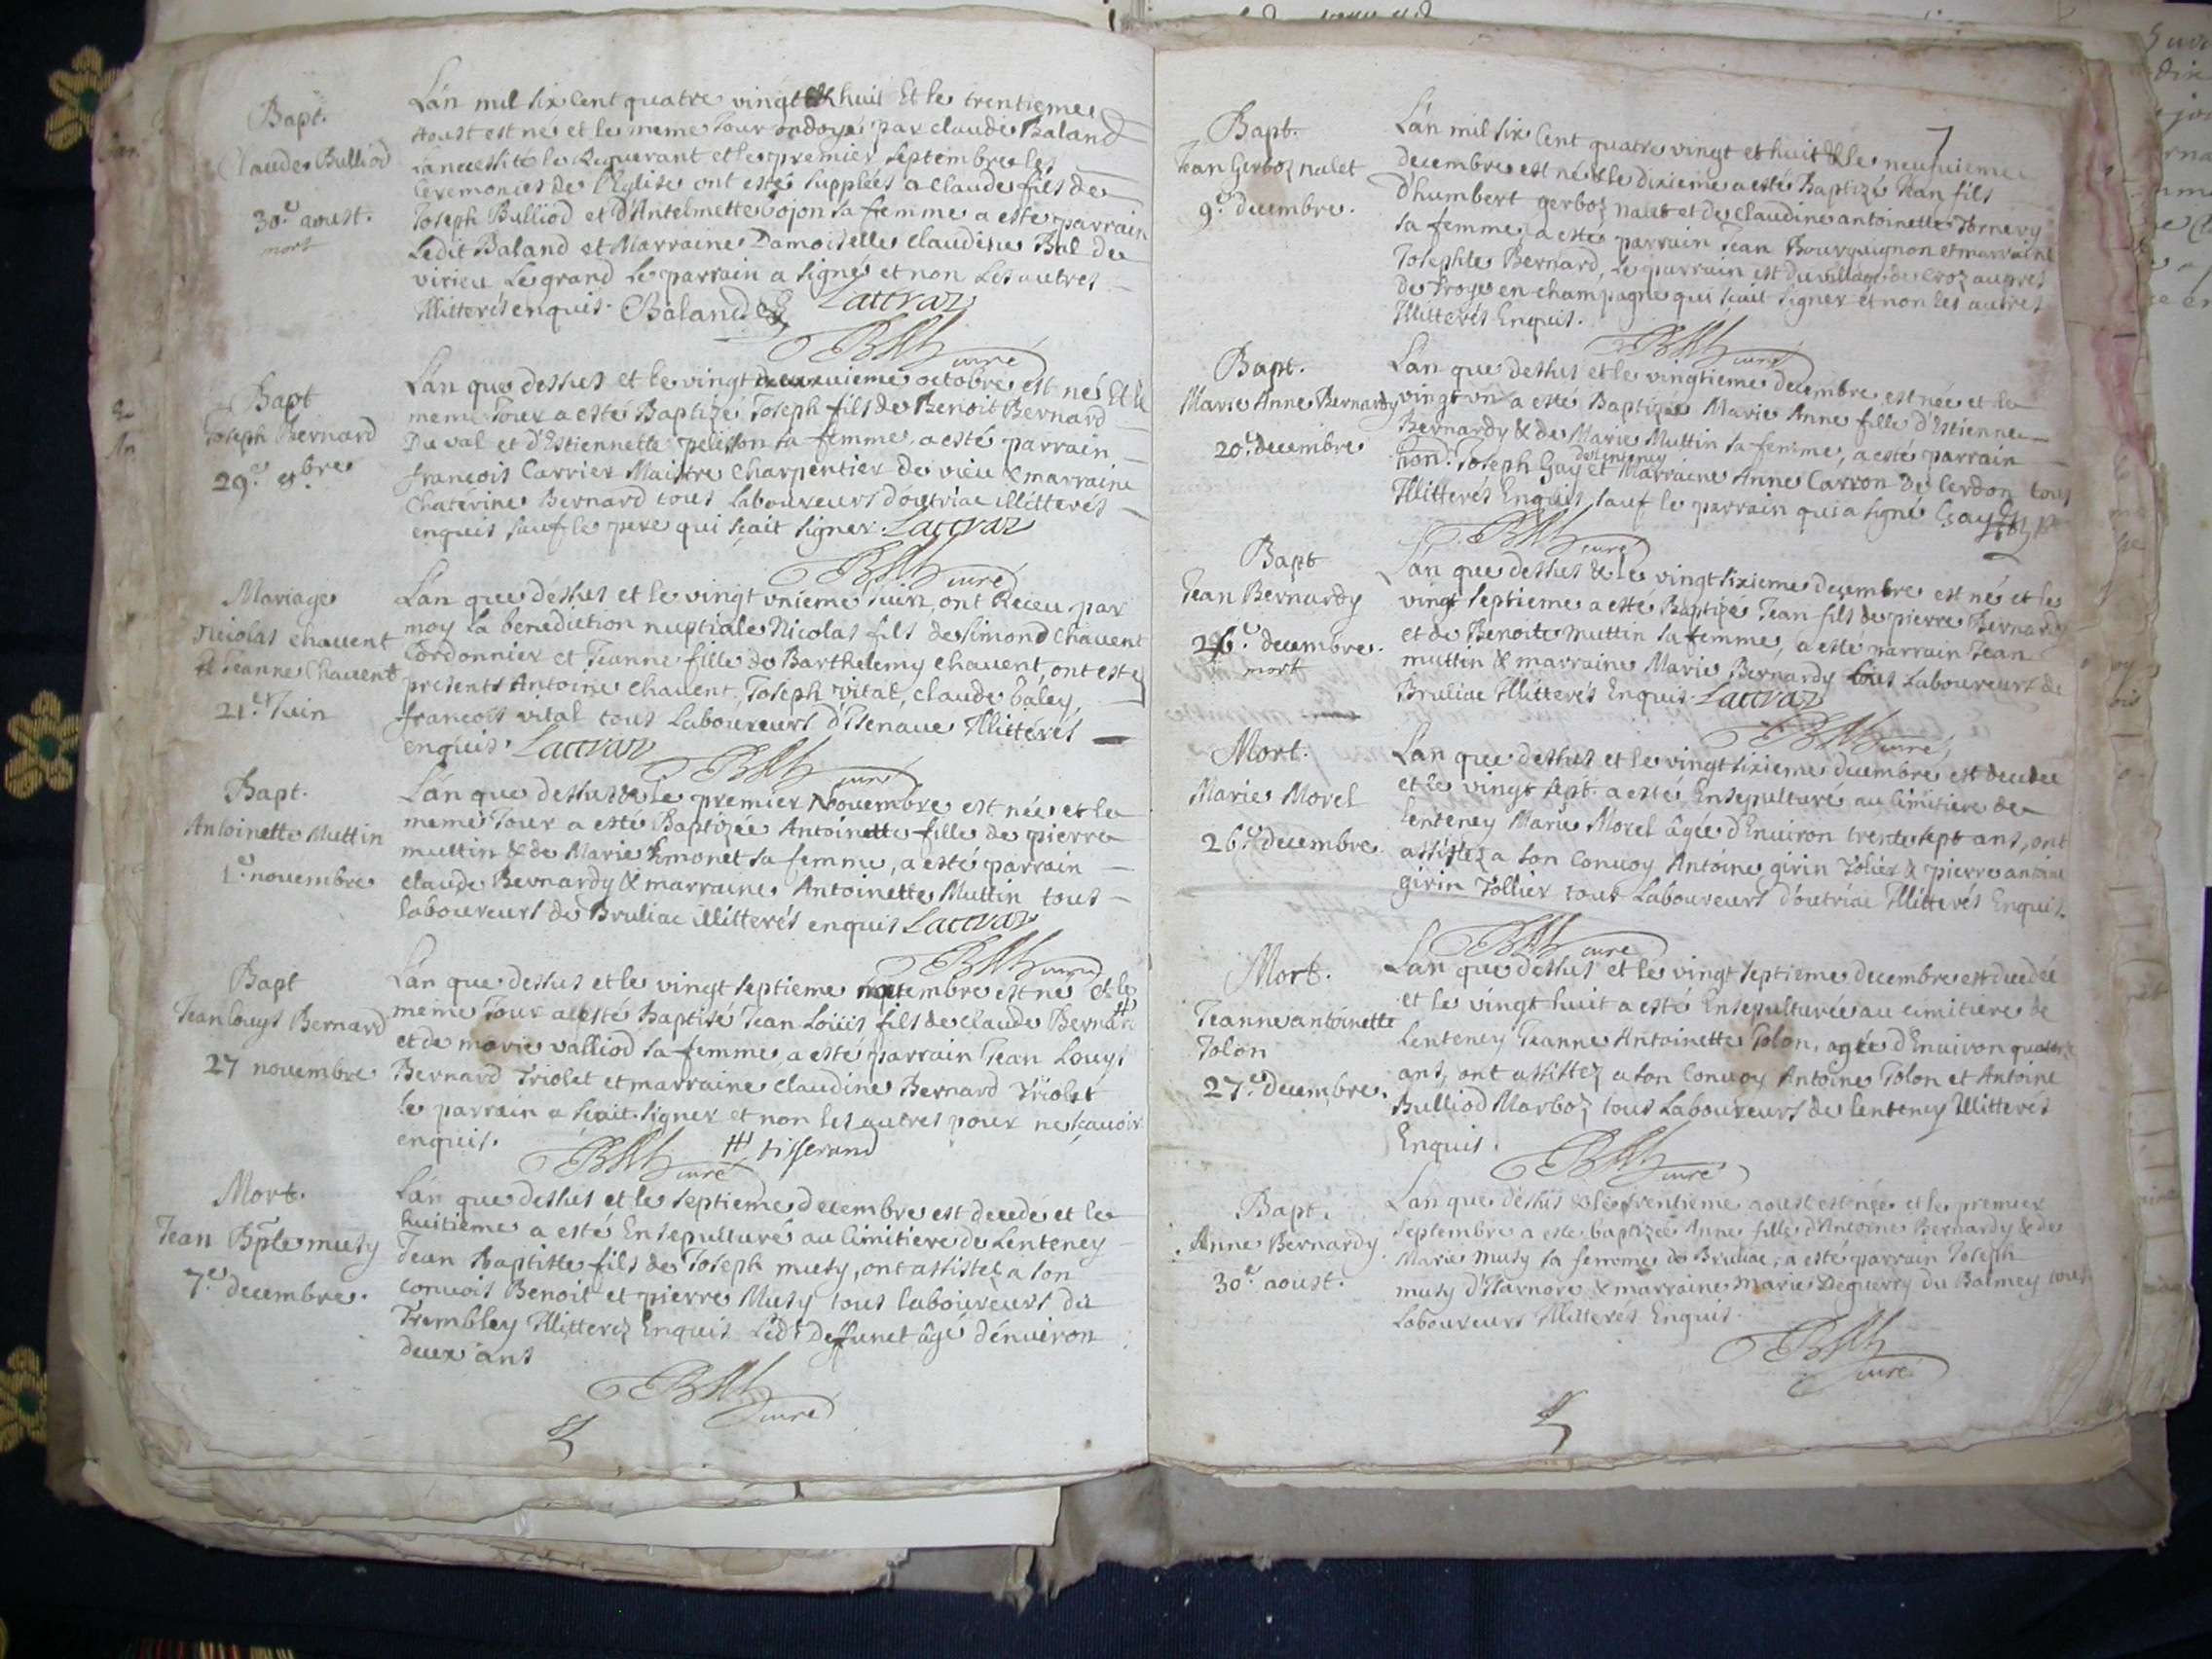 Bapt.
Claude Bulliod
30.e aoust.
mort
L'an mil six cent quatre vingt & huit Et le trentieme
Aoust est né et le meme Jour ondoyé par claude Baland
la necessité le Requerant et le premier septembre les
Ceremonies de l'Eglise ont esté supplées a Claude fils de
Joseph Bulliod et d'Antelmette Gojon sa femme a esté parrain
Ledit Baland et Marraine Damoiselle Claudine Bal de
virieu Le grand Le parrain a signé et non Les autres
Illitterés enquis. Baland Laccraz
curé
Bapt
Joseph Bernard
29.e 8.bre
L'an que dessus et le vingt neuuieme octobre est né Et le
meme Jour a esté Baptizé Joseph fils de Benoit Bernard
Du val et d'Estiennette pelisson sa femme, a esté parrain
francois Carrier Maistre Charpentier de vieu & marraine
Chaterine Bernard tous laboureurs d'outriac illitterés
enquis sauf le pere qui sçait signer. Laccraz
curé
Mariage
Nicolas Chauent
& Jeanne Chauent
21.e Juin
L'an que dessus et le vingt vnieme Juin, ont Receu par
moy La benediction nuptiale Nicolas fils de simond Chauent
Cordonnier et Jeanne fille de Barthelemy chauent, ont esté
presents Antoine Chauent, Joseph vital, Claude baley,
francois vital tous Laboureurs d'Isenaue Illitterés
enquis. Laccraz
curé
Bapt.
Antoinette Muttin
1.e nouembre
L'an que dessus & Le premier Nouembre est née et le
meme Jour a esté Baptizée Antoinette fille de pierre
muttin & de Marie simonet sa femme, a esté parrain
claude Bernardy & marraine Antoinette Muttin tous
laboureurs de Bruliac illitterés enquis Laccraz
curé
Bapt
Jean Louys Bernard
27 nouembre
L'an que dessus et le vingt septieme nouembre est né & le
meme Jour a esté Baptisé Jean Loüis fils de claude Bernard #
et de marie valliod sa femme, a esté parrain Jean Louys
Bernard Triolet et marraine Claudine Bernard Triolet
le parrain a sçait signer et non les autres pour ne sçauoir
enquis.
curé # tisserand
Mort.
Jean Bpte musy
7.e decembre.
L'an que dessus et le septieme decembre est decedé et le
huitieme a esté Ensepulturé au Cimitiere de Lenteney
Jean Baptiste fils de Joseph musy, ont assistez a son
conuois Benoit et pierre Musy tous laboureurs du
Trembley Illitterez Enquis Led.t Deffunct âgé d'enuiron
deux ans
curé
7
Bapt.
Jean Gerboz nalet
9.e decembre.
L'an mil six Cent quatre vingt et huit & le neufuieme
decembre est né & le dixieme a esté Baptizé Jean fils
d'humbert gerboz nalet et de claudine antoinette Tornery
sa femme, a esté parrain Jean Bourguignon et marraine
Josephte Bernard, Le parrain est du village de Croz aupres
de Troye en champagne qui sçait signer et non les autres
Illitterés Enquis.
curé
Bapt.
Marie Anne Bernardy
20.e decembre
L'an que dessus et le vingtieme decembre est née et le
vingt vn a esté Baptizée Marie Anne fille d'Estienne
Bernardy & de Marie Muttin sa femme, a esté parrain
hon.d Joseph Gay de lenteney et Marraine Anne Carron de Cerdon tous
Illitterés Enquis, sauf le parrain qui a signé Gay
curé
Bapt
Jean Bernardy
26.e decembre.
mort
L'an que dessus & le vingt sixieme decembre est né et le
vingt septieme a esté Baptizé Jean fils de pierre Bernardy
et de Benoite muttin sa femme, a esté parrain Jean
muttin & marraine Marie Bernardy tous Laboureurs de
Bruliac Illitterés Enquis. Laccraz
curé
Mort.
Marie Morel
26.e decembre
L'an que dessus et le vingt sixieme decembre est decedee
et le vingt sept a esté Ensepulturé au Cimitiere de
Lenteney Marie Morel âgée d'Enuiron trente sept ans, ont
assistez a son Conuoy Antoine girin Tolier & pierre antoine
girin Tollier tous Laboureurs d'outriac Illitterés Enquis.
curé
Mort.
Jeanne antoinette
Tolon
27.e decembre.
L'an que dessus et le vingt septieme decembre est decedée
et le vingt huit a esté Ensepulturée au Cimitiere de
Lenteney Jeanne Antoinette Tolon, agée d'Enuiron quatorze
ans, ont assistez a son Conuoy Antoine Tolon et Antoine
Bulliod Marboz tous Laboureurs de lenteney Illitterés
Enquis.
curé
Bapt.
Anne Bernardy.
30.e aoust.
L'an que dessus & le trentieme aoust est née et le premier
septembre a esté baptizée Anne fille d'Antoine Bernardy & de
Marie musy sa femme de Bruliac, a esté parrain Joseph
musy d'Isarnore & marraine marie Deguerry du Balmey tous
Laboureurs Illitterés Enquis.
curé